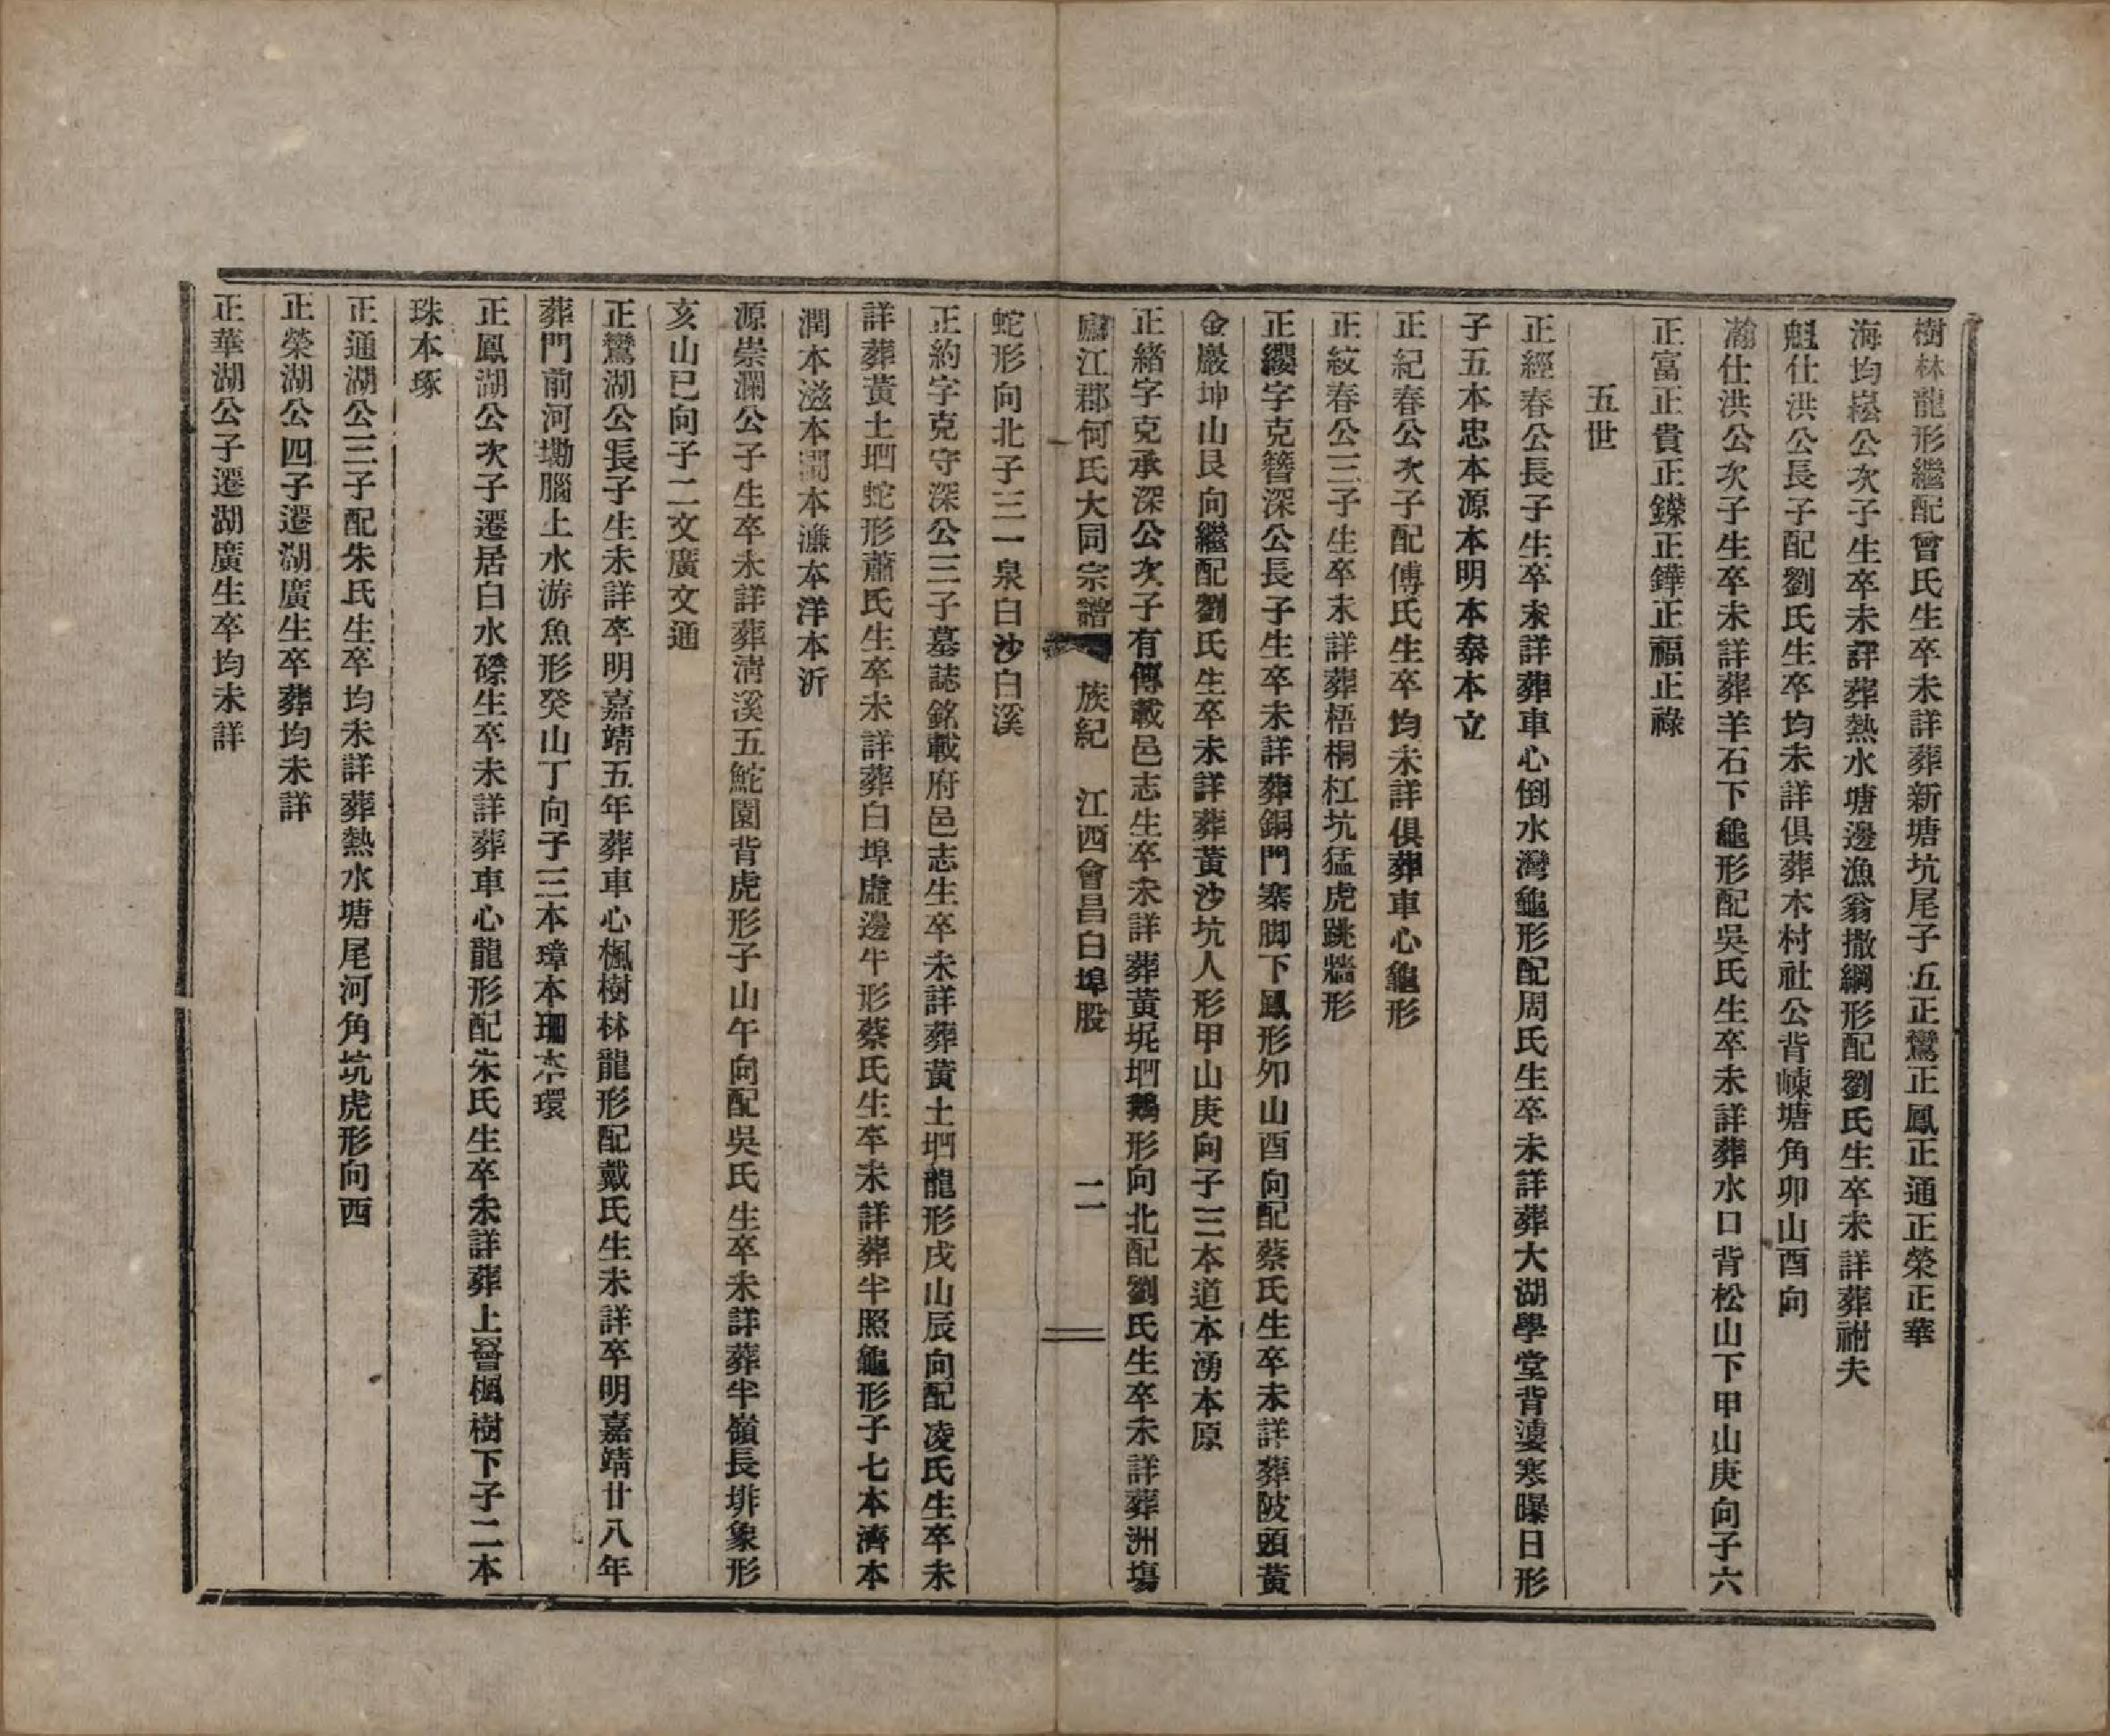 樹林龍形繼配曾氏生卒未詳葬新塘坑尾子五正鸞正鳳正通正榮正華
海均崧公次子生卒未詳葬熱水塘邊漁翁撒網形配劉氏生卒未詳葬祔夫
魁仕洪公長子配劉氏生卒均未詳俱葬木村社公背崠塘角卯山酉向
瀚仕洪公次子生卒未詳葬羊石下龜形配吳氏生卒未詳葬水口背松山下甲山庚向子六
正富正貴正鑅正鏵正福正祿
五世
正經春公長子生卒未詳葬車心倒水灣龜形配周氏生卒未詳葬大湖學堂背寒曝日形
子五本忠本源本明本泰本立
正紀春公次子配傅氏生卒均未詳俱葬車心龜形
正紋春公三子生卒未詳葬梧桐杠坑猛虎跳牆形
正纓字克簪深公長子生卒未詳葬銅門寨脚下鳳形夘山酉向配蔡氏生卒未詳葬陂頭黃
金巖坤山艮向繼配劉氏生卒未詳葬黃沙坑人形甲山庚向子三本道本湧本原
正緒字克承深公次子有傳載邑志生卒未詳葬黃坭垇鵝形向北配劉氏生卒未詳葬洲塲
廬江郡何氏大同宗譜 族紀 江西會昌白埠股 二
蛇形向北子三一泉白沙白溪
正約字克守深公三子墓誌銘載府邑志生卒未詳葬黃土垇龍形戌山辰向配凌氏生卒未
詳葬黃土垇蛇形蕭氏生卒未詳葬白埠虛邊牛形蔡氏生卒未詳葬半照龜形子七本濟本
潤本滋本濶本濂本洋本沂
源崇瀾公子生卒未詳葬淸溪五鮀園背虎形子山午向配吳氏生卒未詳葬半嶺長排象形
亥山巳向子二文廣文通
正鸞湖公長子生未詳卒明嘉靖五年葬車心楓樹林龍形配戴氏生未詳卒明嘉靖廿八年
葬門前河塝腦上水游魚形癸山丁向子三本璋本珊本環
正鳳湖公次子遷居白水磜生卒未詳葬車心龍形配朱氏生卒未詳葬上嶜楓樹下子二本
珠本琢
正通湖公三子配朱氏生卒均未詳葬熱水塘尾河角坑虎形向西
正榮湖公四子遷湖廣生卒葬均未詳
正華湖公子遷湖廣生卒均未詳